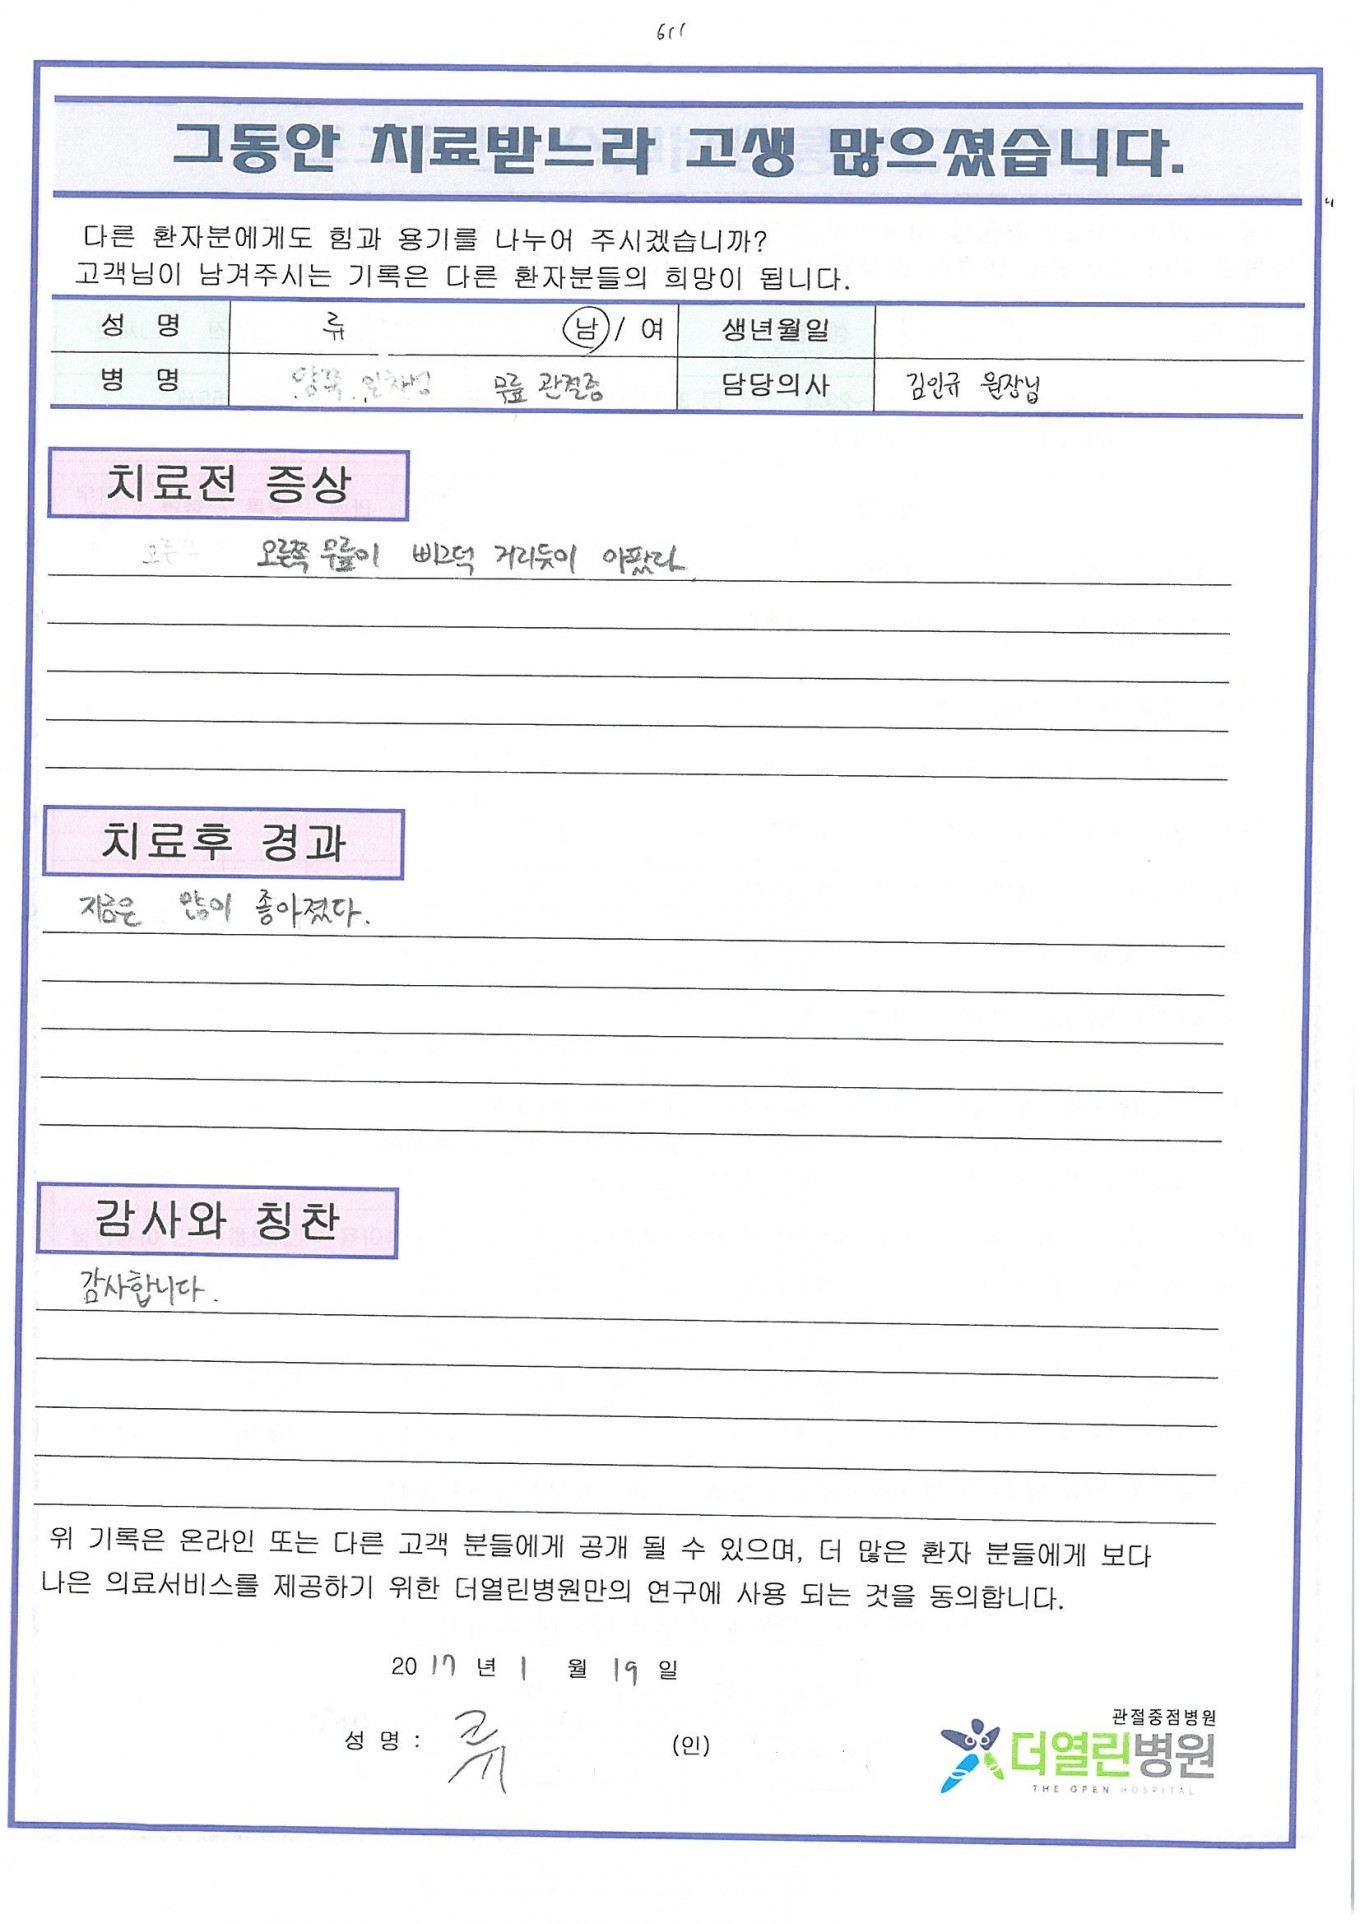 611
그동안 치료받느라 고생 많으셨습니다.
다른 환자분에게도 힘과 용기를 나누어 주시겠습니까?
고객님이 남겨주시는 기록은 다른 환자분들의 희망이 됩니다.
성 명 류 남 / 여 생년월일
병 명 양쪽 무릎 관절증 담당의사 김인규 원장님
치료전 증상
오른쪽 무릎이 삐그덕 거리듯이 아팠다.
치료후 경과
지금은 많이 좋아졌다.
감사와 칭찬
감사합니다.
위 기록은 온라인 또는 다른 고객 분들에게 공개 될 수 있으며, 더 많은 환자 분들에게 보다
나은 의료서비스를 제공하기 위한 더열린병원만의 연구에 사용 되는 것을 동의합니다.
2017 년 1 월 19 일
성 명 : 류 (인)
관절중점병원
더열린병원
THE OPEN HOSPITAL